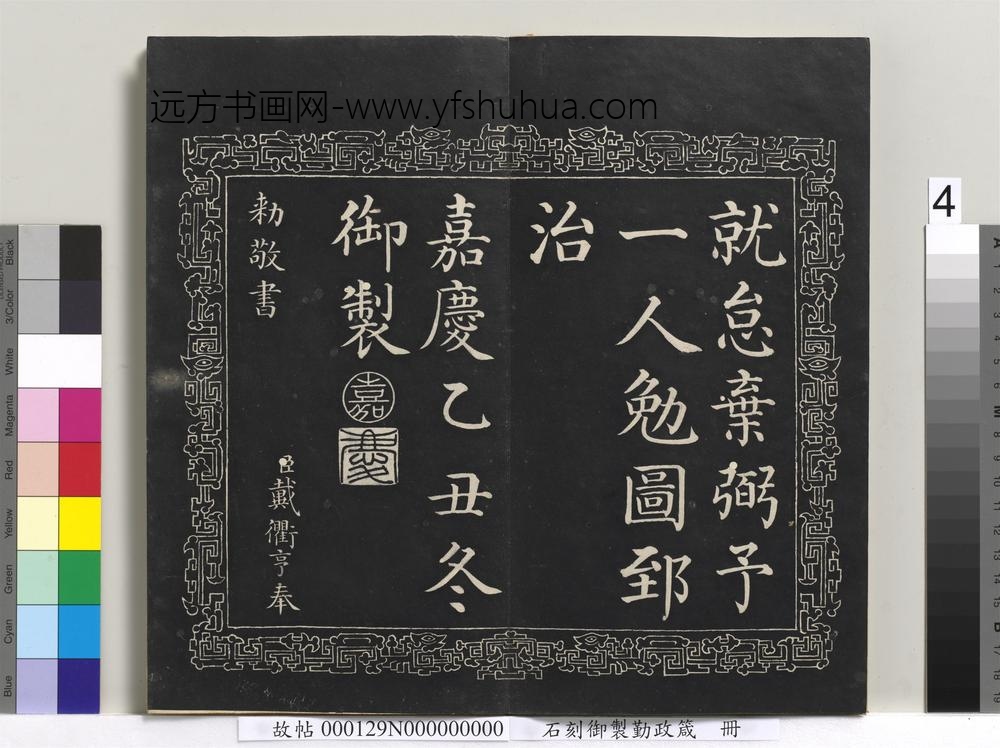 远方书画网-www.yfshuhua.com
就怠棄弼予
一人勉圖郅
治
嘉慶乙丑冬
御製
嘉
慶
臣戴衢亨奉
勅敬書
4
Black
3/Color
White
Magenta
Red
Yellow
Green
Cyan
Blue
A
1
2
3
4
5
6
M
8
9
10
11
12
13
14
15
B
17
18
19
故帖 000129N000000000 石刻御製勤政箴 冊